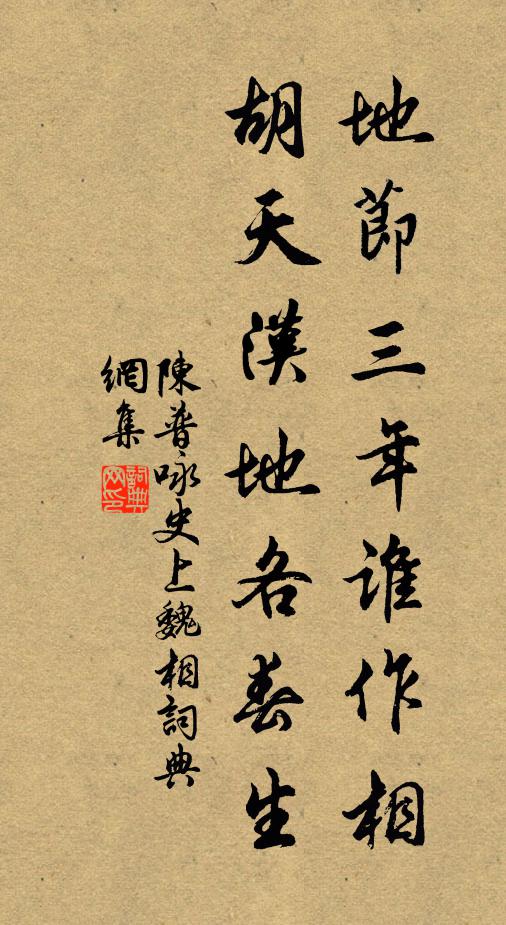 地節三年誰作相
胡天漢地各春生
陳普咏史上魏相詞典
網集
詞典
网印